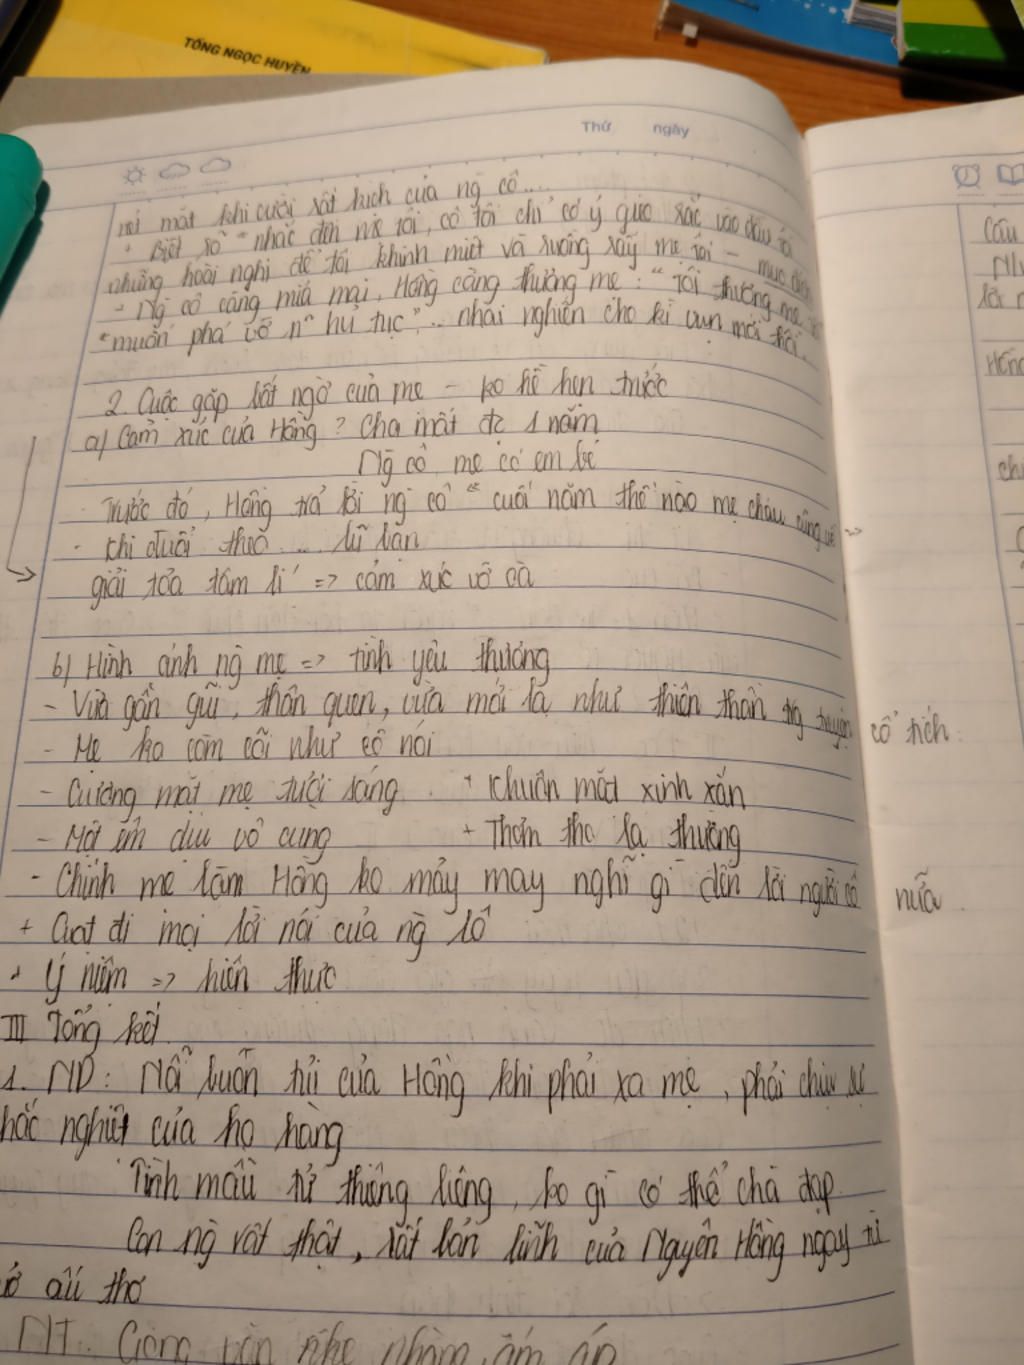 TỐNG NGỌC HUYỀN
Thứ ngày
mặt khi cười rất kịch của ng cô....
+ Biết rõ "nhắc đến mẹ tôi, cô tôi chỉ có ý gieo rắc vào đầu
những hoài nghi để tôi khinh miệt và ruồng rẫy mẹ tôi - mục đích
- Ng cô càng mỉa mai, Hồng càng thương mẹ: "Tôi thương mẹ
"muốn phá vỡ n~ hủ tục"... nhai nghiến cho kì vụn mới thôi.
2. Cuộc gặp bất ngờ của mẹ - ko hề hẹn trước
a) Cảm xúc của Hồng? Cha mất đc 1 năm
Ng cô, mẹ có em bé
- Trước đó, Hồng trả lời ng cô "cuối năm thế nào mẹ cháu cũng về"
- Khi đuổi theo ... lũ bạn
giải tỏa tâm lí => cảm xúc vỡ oà
b) Hình ảnh ng mẹ => tình yêu thương
- Vừa gần gũi, thân quen, vừa mới lạ như thiên thần trg truyện cổ tích.
- Mẹ ko còm cõi như cô nói
- Gương mặt mẹ tươi sáng + Khuôn mặt xinh xắn
- Một êm dịu vô cùng + Thơm tho lạ thường
- Chính mẹ làm Hồng ko mảy may nghĩ gì đến lời người cô nữa.
+ Gạt đi mọi lời nói của ng cô
+ Ý niệm => hiện thực
III Tổng kết
1. ND: Nỗi buồn tủi của Hồng khi phải xa mẹ, phải chịu sự
hắc nghiệt của họ hàng
Tình mẫu tử thiêng liêng, ko gì có thể chà đạp
Con ng rất thật, rất bản lĩnh của Nguyên Hồng ngay từ
ấu thơ
NT: Giọng văn nhẹ nhàng, ấm áp
Câu
Hồng